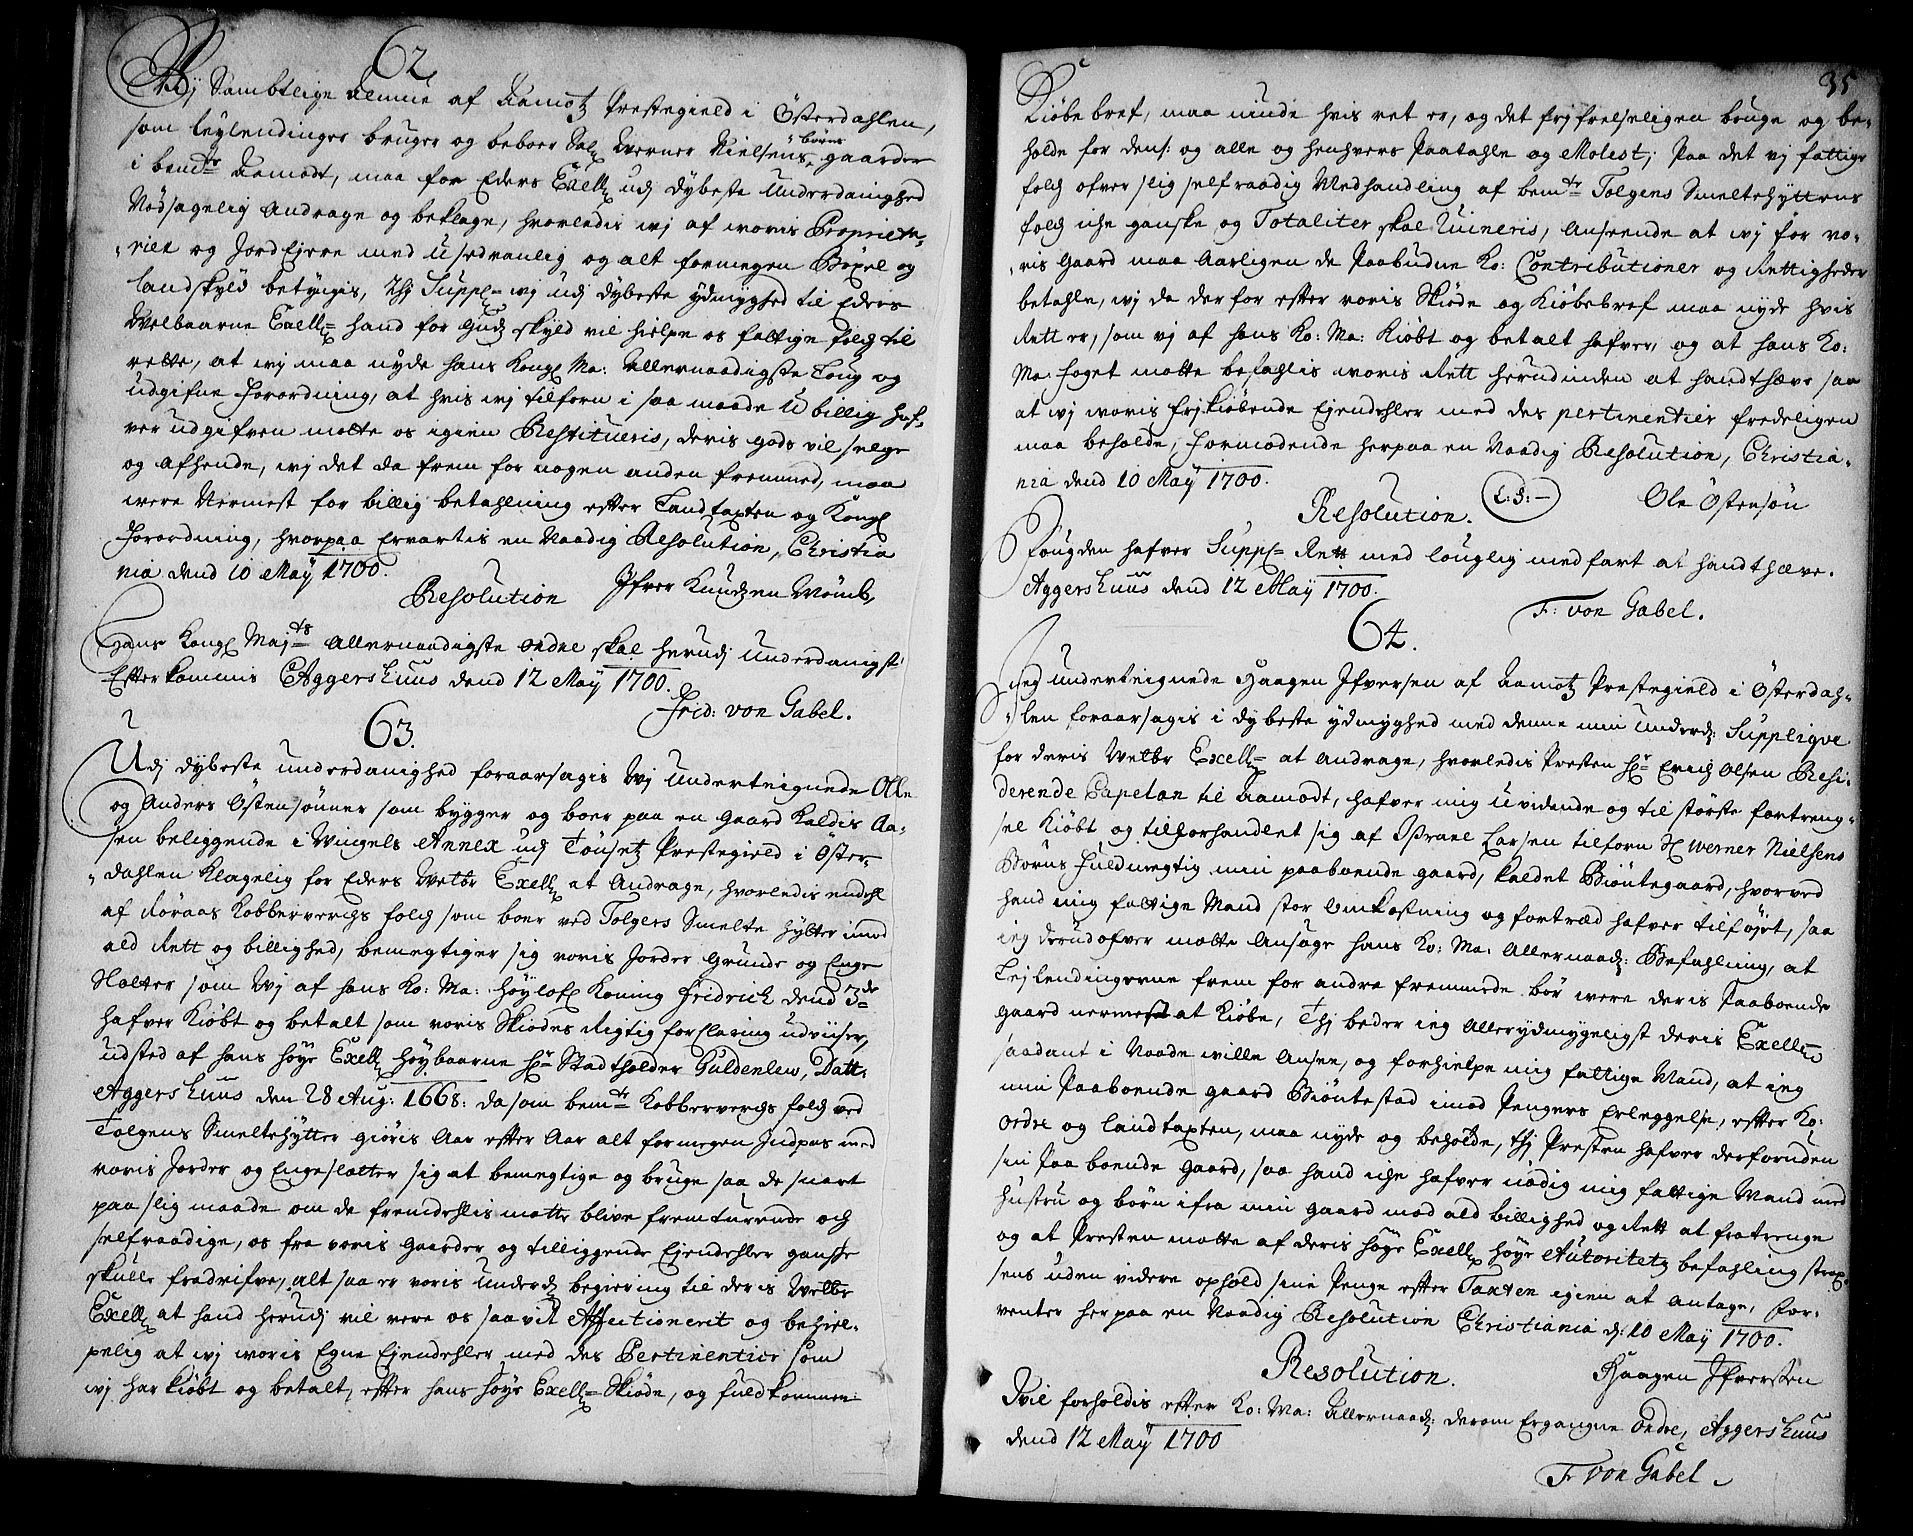 62.
Wij Sambtlige Almue af Aamotz Prestegield i Österdahlen,
som leylendinger bruger og beboer Sal: Werner Nielsens börns gaarder
i bemte Aamodt, maa for Eders Excell: udj dybeste Underdanighed
Nödsagelig Andrage og beklage, hvorledis wj af woris Proprieta-
-rier og Jord Ejere med Usedvanlig og alt formegen Böxel og
landskyld betyngis, Thj Suppl: wj udj dybeste ydmyghed til Ederis
Welbaarne Excell: hand for Gudz skyld vil hielpe os fattige folch til
rette, at wj maa nyde hans Kongl Ma: Allernaadigste Loug og
udgifne forordning, at hvis wj tilforn i saa maade U billig haf-
ver udgifven motte os igien Restitueris, deris gods vil selge
og afhende, wj det da frem for nogen anden fremmed, maa
were Nermest for billig betahlning efter Landtaxten og Kongl
forordning, hvorpaa Ervartis en Naadig Resolution, Christia
nia dend 10 May 1700.
Resolution Ifver Knudzen Womb,
Hans Kongl Mayts allernaadigste ordre skal herudj underdanigst
Efterkommis Aggershuus dend 12 May 1700.
Frid: von Gabel.
63.
Udj dybeste underdanighed foraarsagis Wj undertegnede Olle
og Anders Östensönner som bygger og boer paa en gaard kaldis Aa-
sen beliggende i Wingels Annex udj Tönsetz Prestegield i Öster-
-dahlen klagelig for Eders Welbr Excell: at Andrage, hvorledis endehl
af Röraas Kobberverchs folch som boer ved Tolgens Smelte hytter imod
ald Rett og billighed, bemegtiger sig voris Jorder Grunde og Enge
Slotter som Wj af hans Ko: Ma: Höylofl Koning Fridrich dend 3de
hafver Kiöbt og betalt som voris Skiödes Rigtig forclaring udviiser,
udsted af hans höye Excell: höybaarne Hr Stadtholder Guldenlew, Datt:
Aggershuus den 28 Aug: 1668: da som bemte Kobberverchs folch ved
Tolgens Smeltehytter giöris Aar efter Aar alt for megen Indpas med
voris Jorder og Engeslotter sig at bemegtige og bruge saa de snart
paa slig maade om de fremdehlis motte blive fremturende och
selfraadige, os fra voris gaarder og tilliggende Ejendehler gansche
skulle fradrifve, alt saa er voris underd: begiering til deris Welbr
Excell: at hand herudj vil vere os saavit Affectionerit og behiel-
pelig at wj woris Egne Ejendehler med des Pertinentier som
wj har kiöbt og betalt, efter hans höye Excell: Skiöde, og fuldkommen
35
Kiöbe bref, maa niude hvis ret er, og det frj frelseligen bruge og be-
holde for dens: og alle og henhvers Paatahle og Molest; Paa det wj fattige
folch ofver slig selfraadig Medhandling af bemte Tolgens Smeltehyttens
folch iche ganske og Totaliter skal Ruineris, Anseende at wj for vo-
-ris gaard maa Aarligen de Paabudne Ko: Contributioner og Rettigheder
betahle, wj da derfor efter voris Skiöde og Kiöbebref maa nyde hvis
Rett er, som vj af hans Ko: Ma: Kiöbt og betalt hafver, og at hans Ko:
Ma: foget motte befahlis woris Rett herudinden at handthæve saa
at wj woris frj kiöbende Ejendehler med des pertinentier fredeligen
maa beholde, formodende herpaa en Naadig Resolution, Christia-
nia dend 10 May 1700.
L:S:— Ole Östensön
Resolution.
Fougden hafver Suppl: Rett med louglig medfart at handthæve.
Aggershuus dend 12 May 1700.
F: von Gabel.
64.
Jeg underteignede Haagen Ifversen af Aamotz Prestegield i Österdah-
-len foraarsagis i dybeste ydmyghed med denne min underd: Suppliqve
for deris Welbr Excell: at Andrage, hvorledis Presten Hr Erich Olsen Resi-
derende Capelan til Aamodt, hafver mig uvidende og til störste fortreng-
sel Kiöbt og tilforhandlet sig af Israel Larsen tilforn Sl Werner Nielsens
Börns fuldmegtig min paaboende gaard, kaldet Biöntegaard, hvorved
hand mig fattige Mand stor Omkostning og fortræd hafver tilföjet, saa
ieg derudofver motte Ansöge hans Ko: Ma: Allernaad: Befahling, at
Lejlendingerne frem for andre fremmede bör were deris Paaboende
gaard nermest at kiöbe, Thj beder ieg Allerydmygeligst deris Excell:
saadant i Naade wille Ansee, og forhielpe mig fattige Mand, at ieg
min Paaboende gaard Biöntestad imod Pengers Erleggelse, efter Ko:
Ordre og landtaxten, maa nyde og beholde, thj Presten hafver derforuden
sin Paa boende gaard, saa hand iche hafver nödig mig fattige Mand med
hustru og börn ifra min gaard mod ald billighed og Rett at fratrenge
og at Presten motte af deris höye Excell: höye Autoritetz befahling strax-
sens uden videre ophold sine Penge efter Taxten igien at antage, for-
venter herpaa en Naadig Resolution Christiania d: 10 May 1700.
Resolution. Haagen Ifversen
Vil forholdis efter Ko: Ma: Allernaad: derom Ergangne Ordre, Aggershuus
dend 12 May 1700
F von Gabel